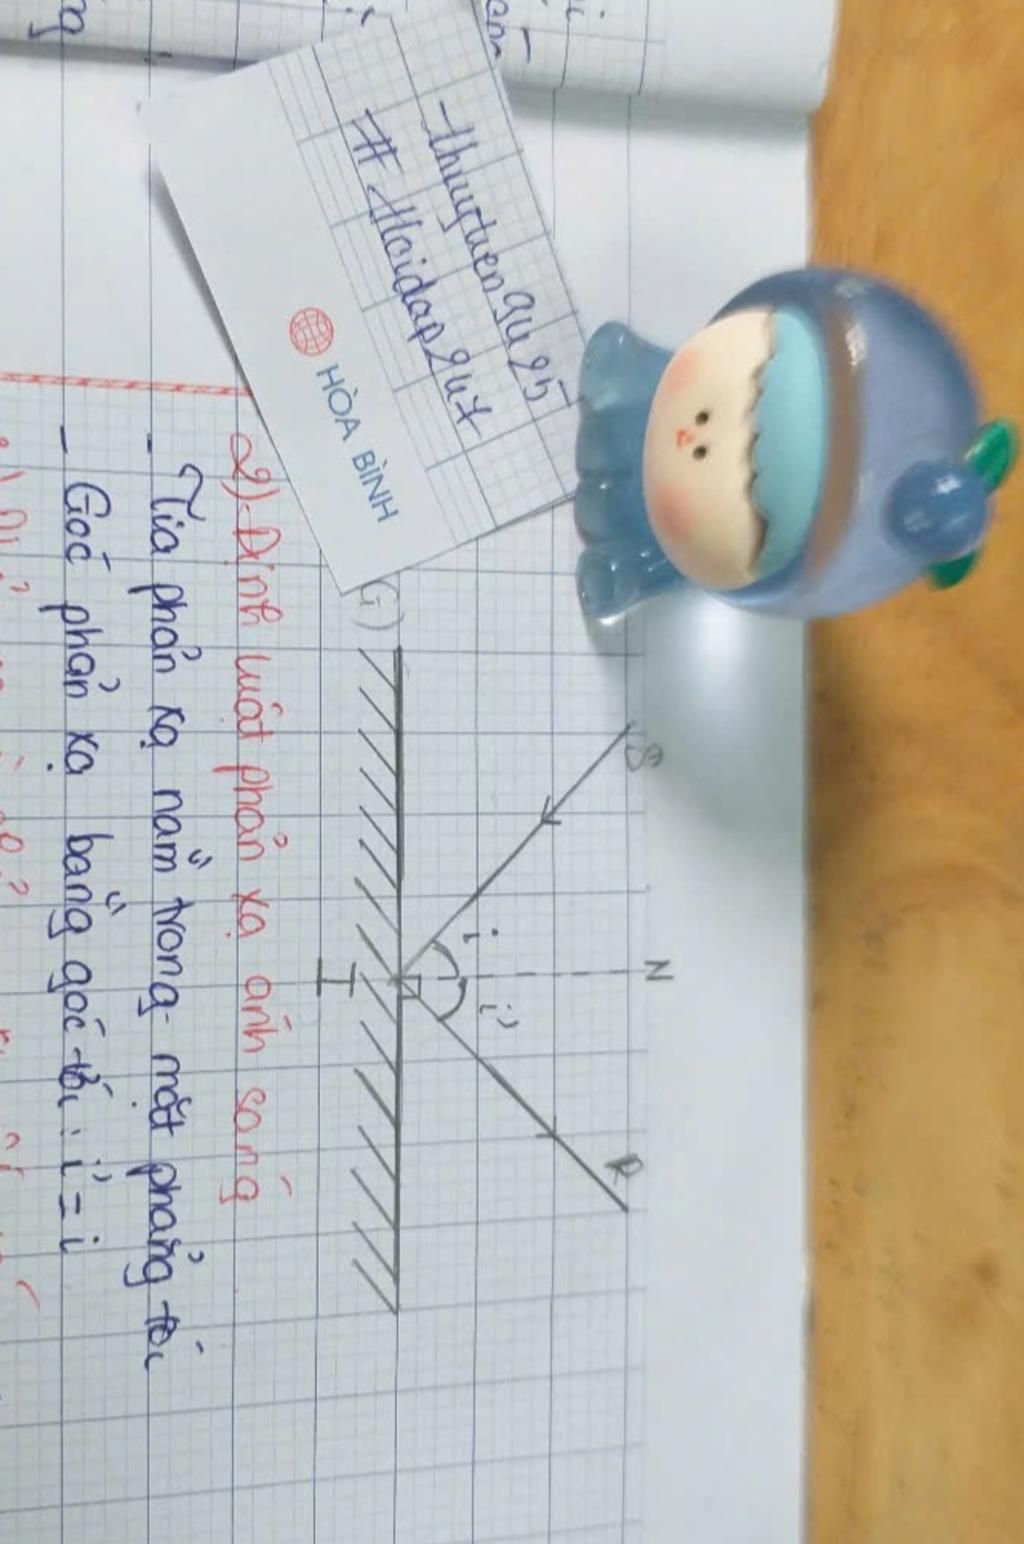 -thuytien9425
# Hoidap247
HÒA BÌNH
S
N
R
i
i'
I
2) Định luật phản xạ ánh sáng
- Tia phản xạ nằm trong mặt phẳng tới
- Góc phản xạ bằng góc tới : i' = i